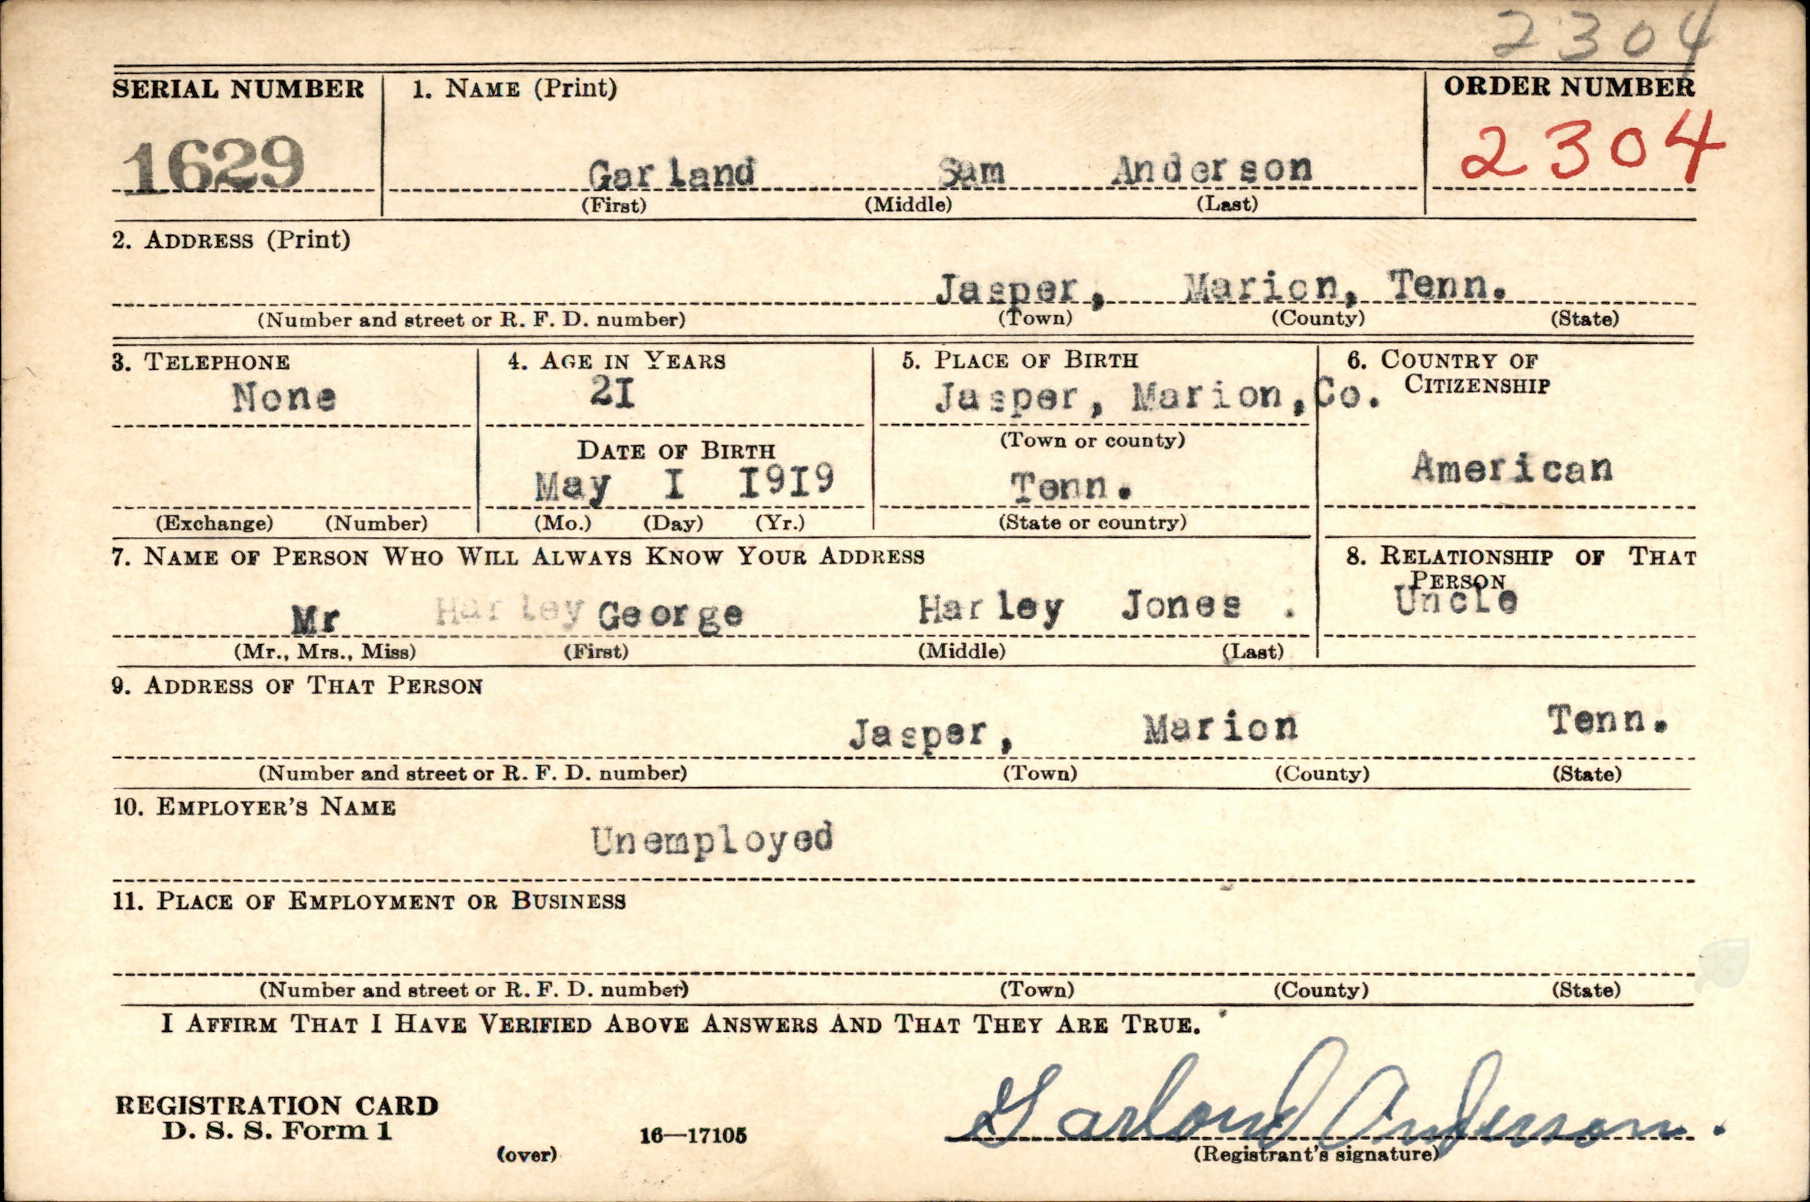 2304
SERIAL NUMBER 1. NAME (Print) ORDER NUMBER
1629 Garland Sam Anderson 2304
(First) (Middle) (Last)
2. ADDRESS (Print)
Jasper, Marion, Tenn.
(Number and street or R. F. D. number) (Town) (County) (State)
3. TELEPHONE 4. AGE IN YEARS 5. PLACE OF BIRTH 6. COUNTRY OF
CITIZENSHIP
None 2I Jasper, Marion, Co.
DATE OF BIRTH (Town or county)
May I I9I9 Tenn. American
(Exchange) (Number) (Mo.) (Day) (Yr.) (State or country)
7. NAME OF PERSON WHO WILL ALWAYS KNOW YOUR ADDRESS 8. RELATIONSHIP OF THAT
PERSON
Mr Harley George Harley Jones . Uncle
(Mr., Mrs., Miss) (First) (Middle) (Last)
9. ADDRESS OF THAT PERSON
Jasper, Marion Tenn.
(Number and street or R. F. D. number) (Town) (County) (State)
10. EMPLOYER'S NAME
Unemployed
11. PLACE OF EMPLOYMENT OR BUSINESS
(Number and street or R. F. D. number) (Town) (County) (State)
I AFFIRM THAT I HAVE VERIFIED ABOVE ANSWERS AND THAT THEY ARE TRUE.
Garland Anderson.
REGISTRATION CARD
D. S. S. Form 1 16—17105
(over) (Registrant's signature)